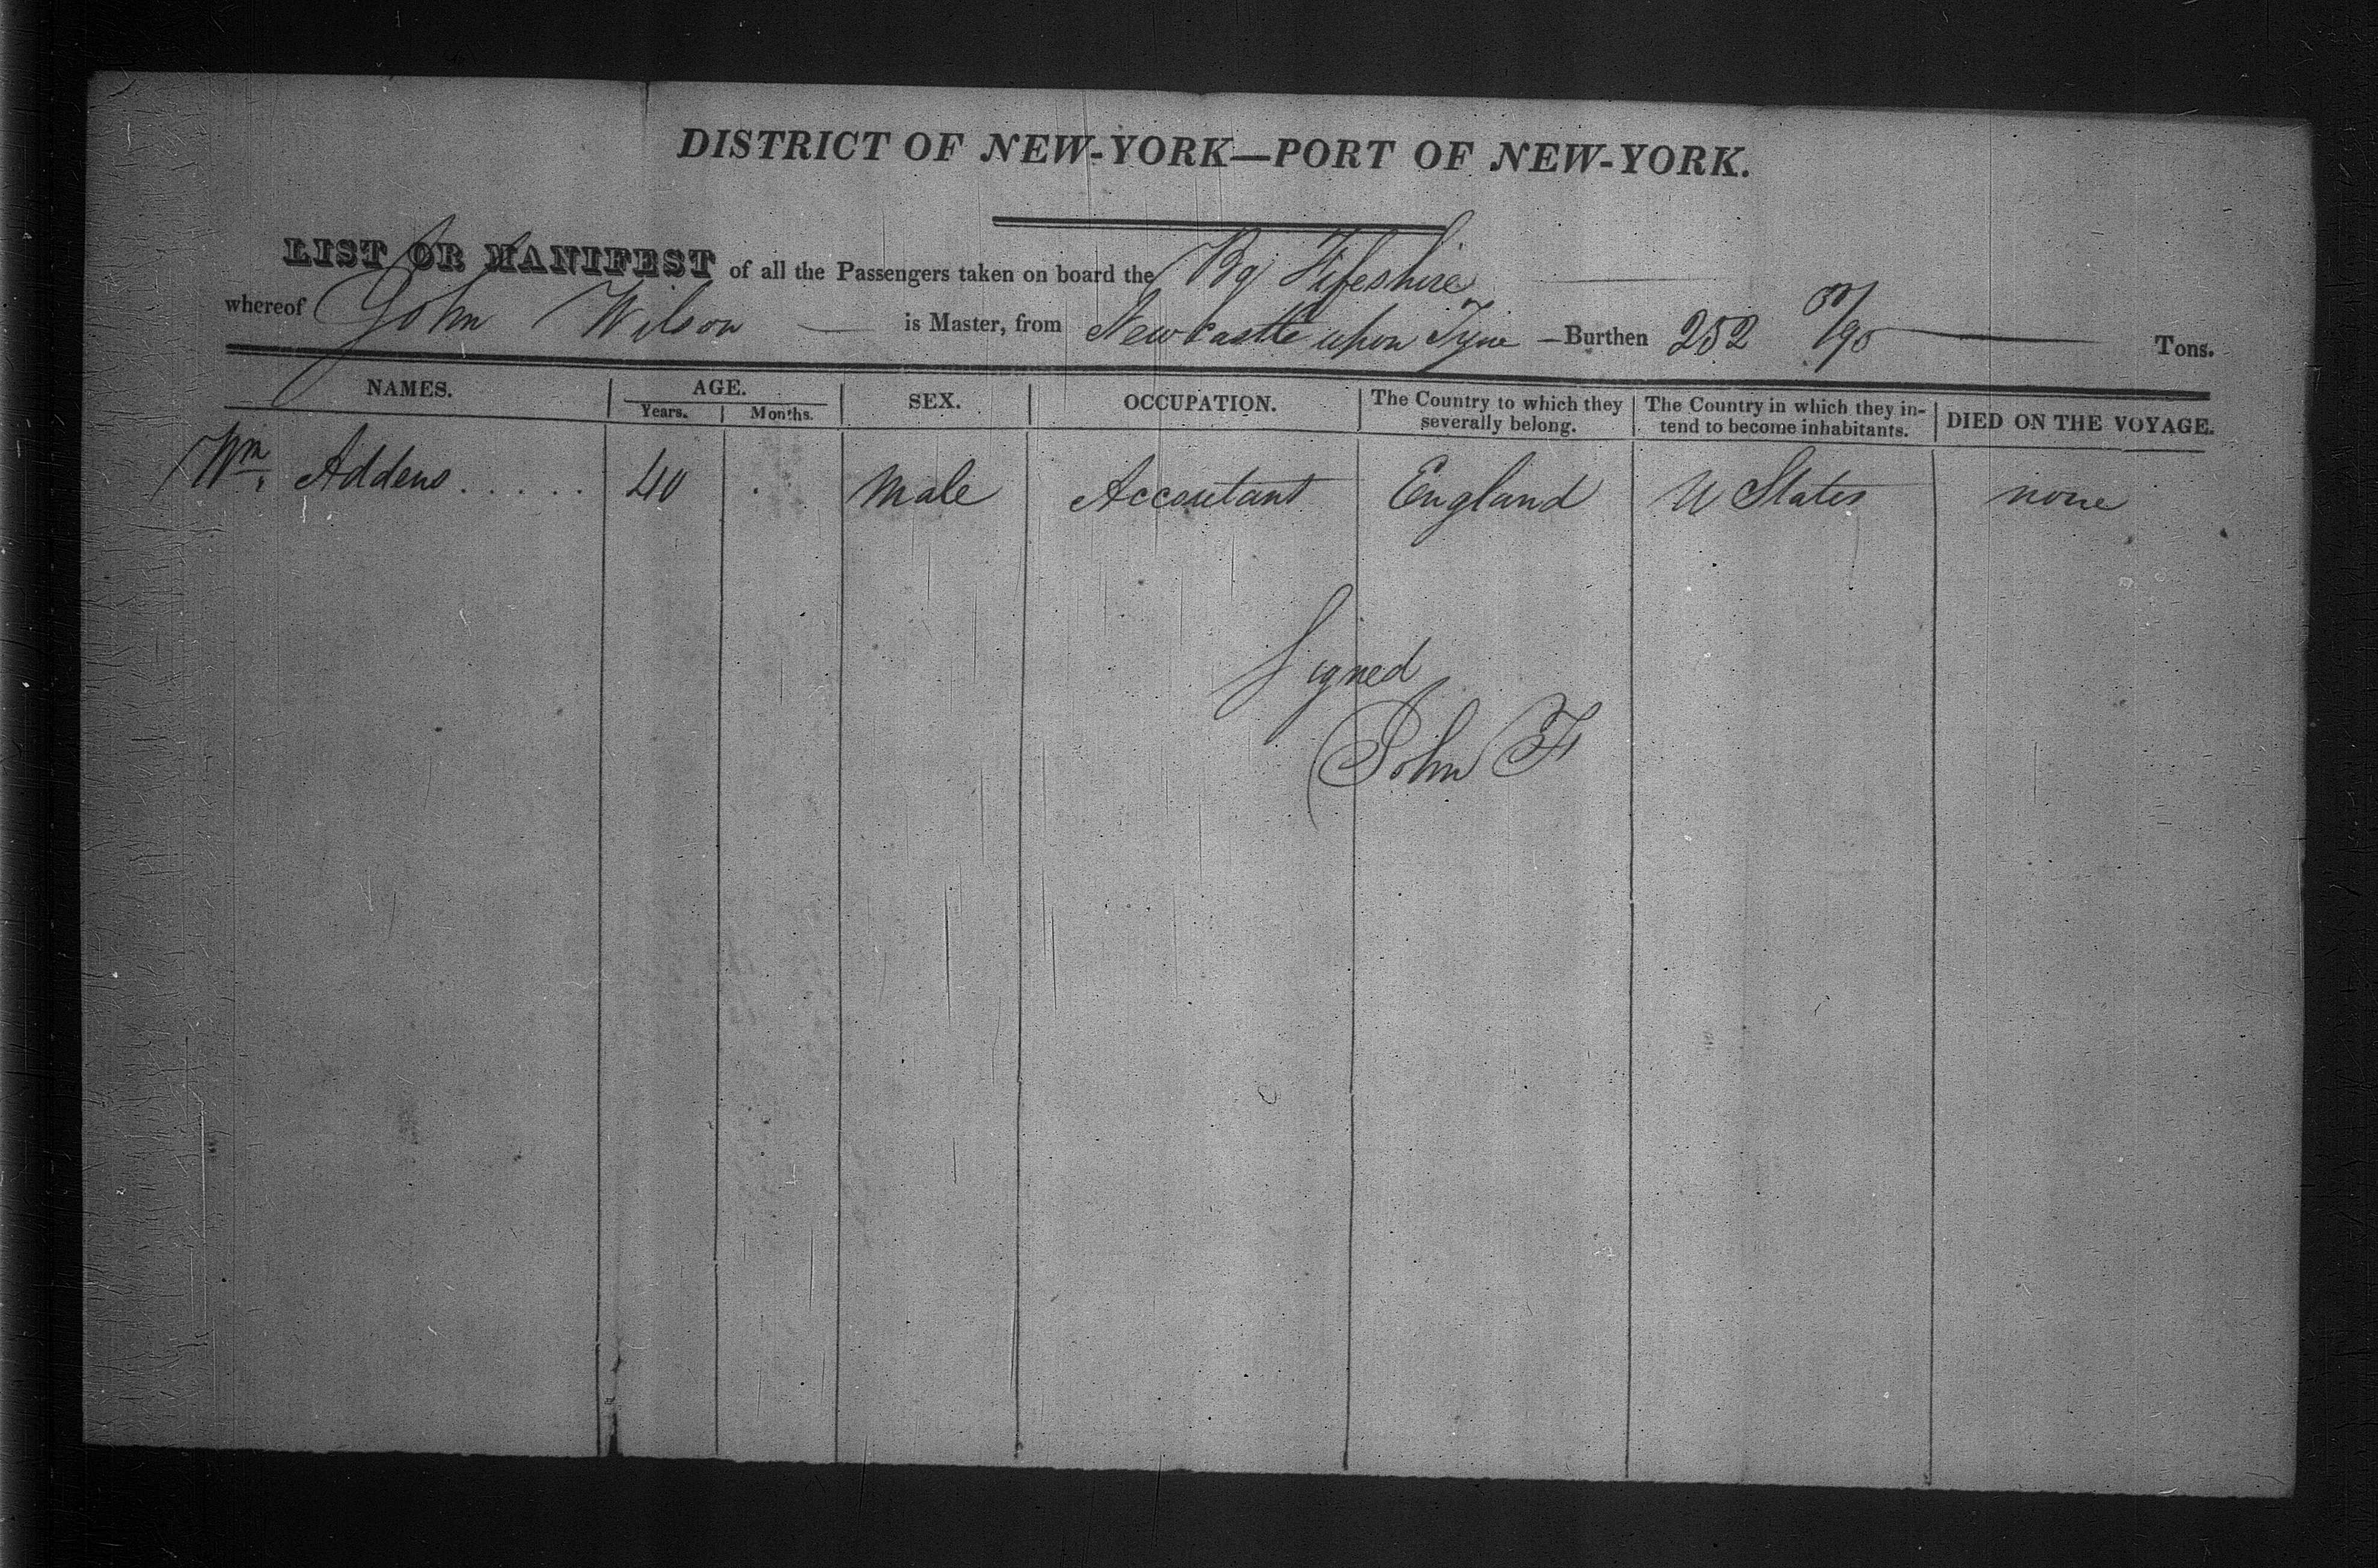 DISTRICT OF NEW-YORK—PORT OF NEW-YORK.
LIST OR MANIFEST of all the Passengers taken on board the Bg Fifeshire
whereof John Wilson is Master, from Newcastle upon Tyne — Burthen 252 /95 Tons.
NAMES. AGE. SEX. OCCUPATION. The Country to which they severally belong. The Country in which they in- tend to become inhabitants. DIED ON THE VOYAGE.
Years. Months.
Wm. Addens ..... 40 . Male Accountant England U States none
Signed
John